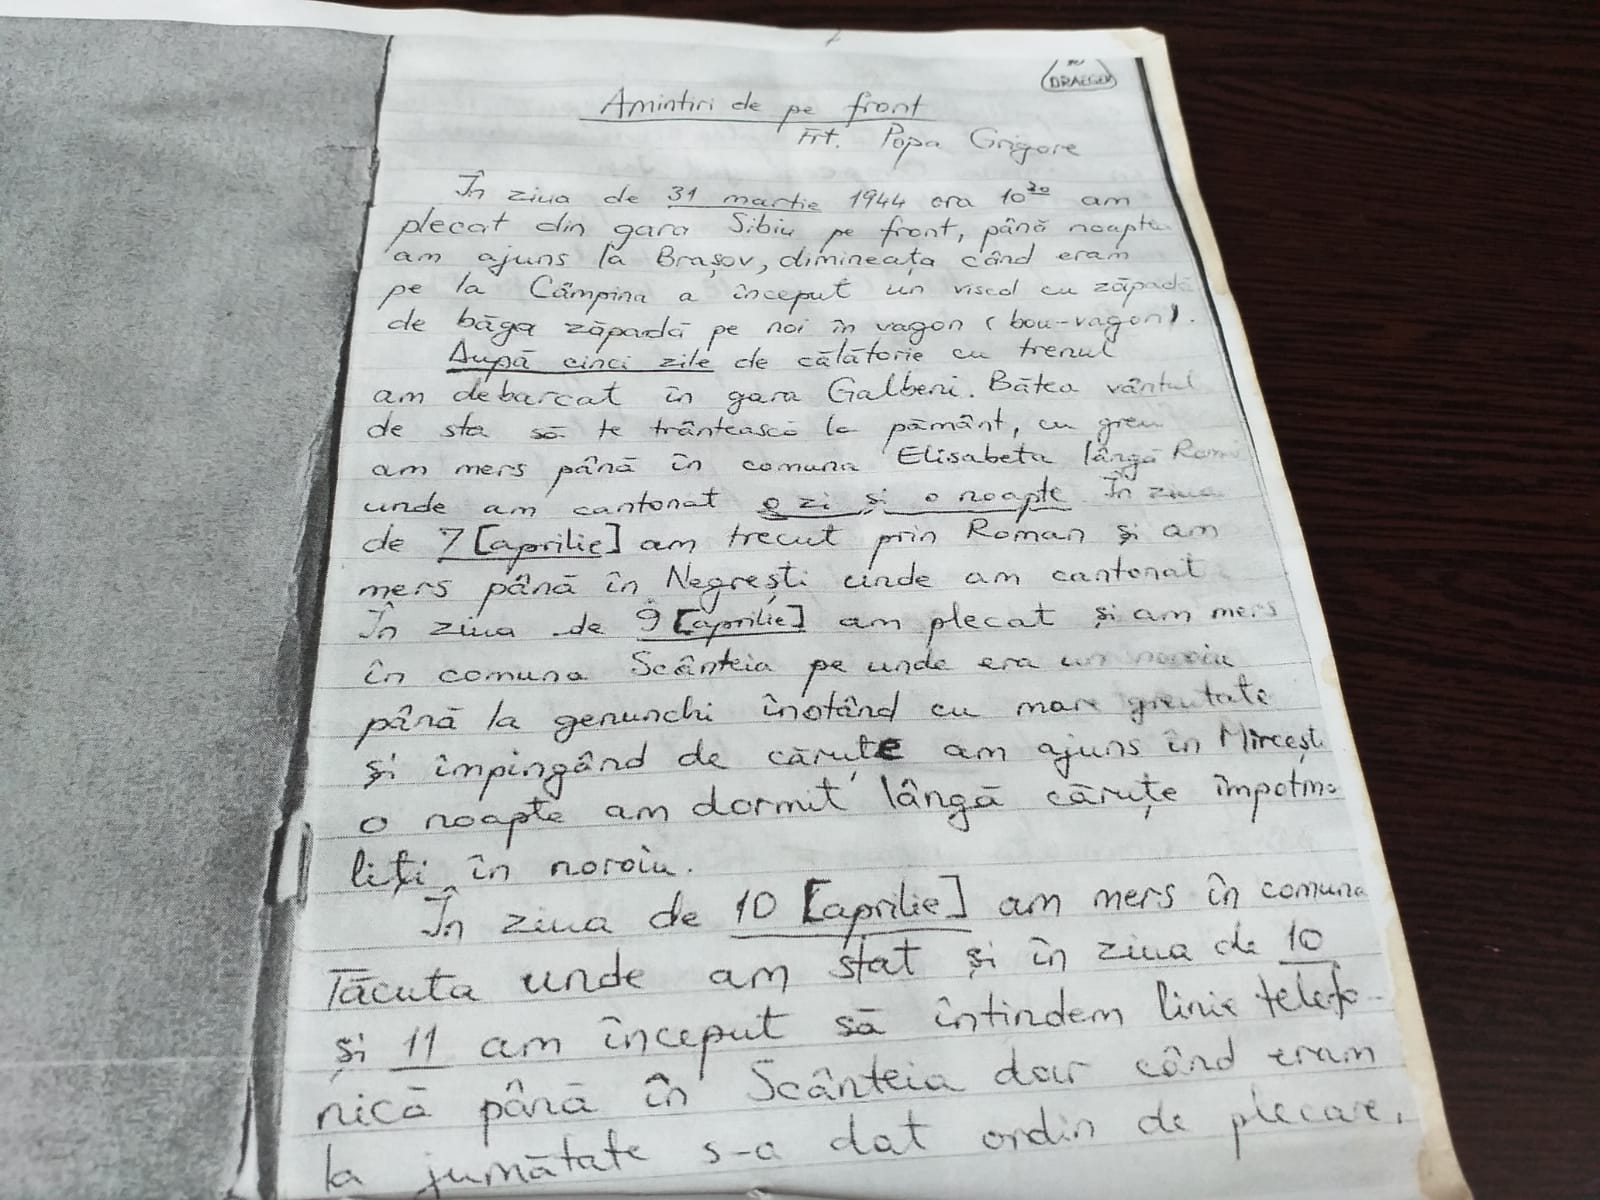 DRAEGER
Amintiri de pe front
Frt. Popa Grigore
În ziua de 31 martie 1944 ora 10 30 am
plecat din gara Sibiu pe front, până noapte
am ajuns la Brașov, dimineața când eram
pe la Câmpina a început un viscol cu zăpadă
de băga zăpadă pe noi în vagon (bou-vagon).
După cinci zile de călătorie cu trenul
am debarcat în gara Galbeni. Bătea vântul
de sta să te trântească la pământ, cu greu
am mers până în comuna Elisabeta lângă Roman
unde am cantonat o zi și o noapte În ziua
de 7 [aprilie] am trecut prin Roman și am
mers până în Negrești unde am cantonat
În ziua de 9 [aprilie] am plecat și am mers
în comuna Scânteia pe unde era un noroiu
până la genunchi înotând cu mare greutate
și împingând de căruțe am ajuns în Mircești
o noapte am dormit lângă căruțe împotmo-
liți în noroiu.
În ziua de 10 [aprilie] am mers în comuna
Tăcuta unde am stat și în ziua de 10
și 11 am început să întindem linie telefo-
nică până în Scânteia dar când eram
la jumătate s-a dat ordin de plecare.